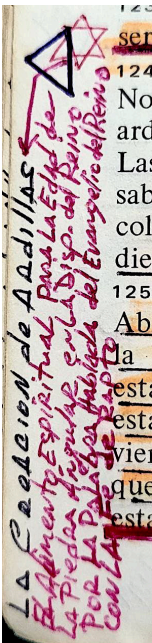 La Creación de Ardillas
El Alimento Espiritual para la Edad de
La Piedra Angular, en la Disp. del Reino
Por la Palabra Hablada del Evangelio del Reino
Con la Fe de Rapto
ser
124
No
ard
Las
sab
col
die
125
Ab
la
esta
esta
vier
que
esta